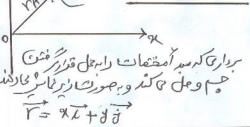 r
0
x
برداری که مبدأ مختصات را به محل قرار گرفتن
جسم وصل می‌کند و به صورت زیر نمایش می‌دهند
r⃗ = x i⃗ + y j⃗